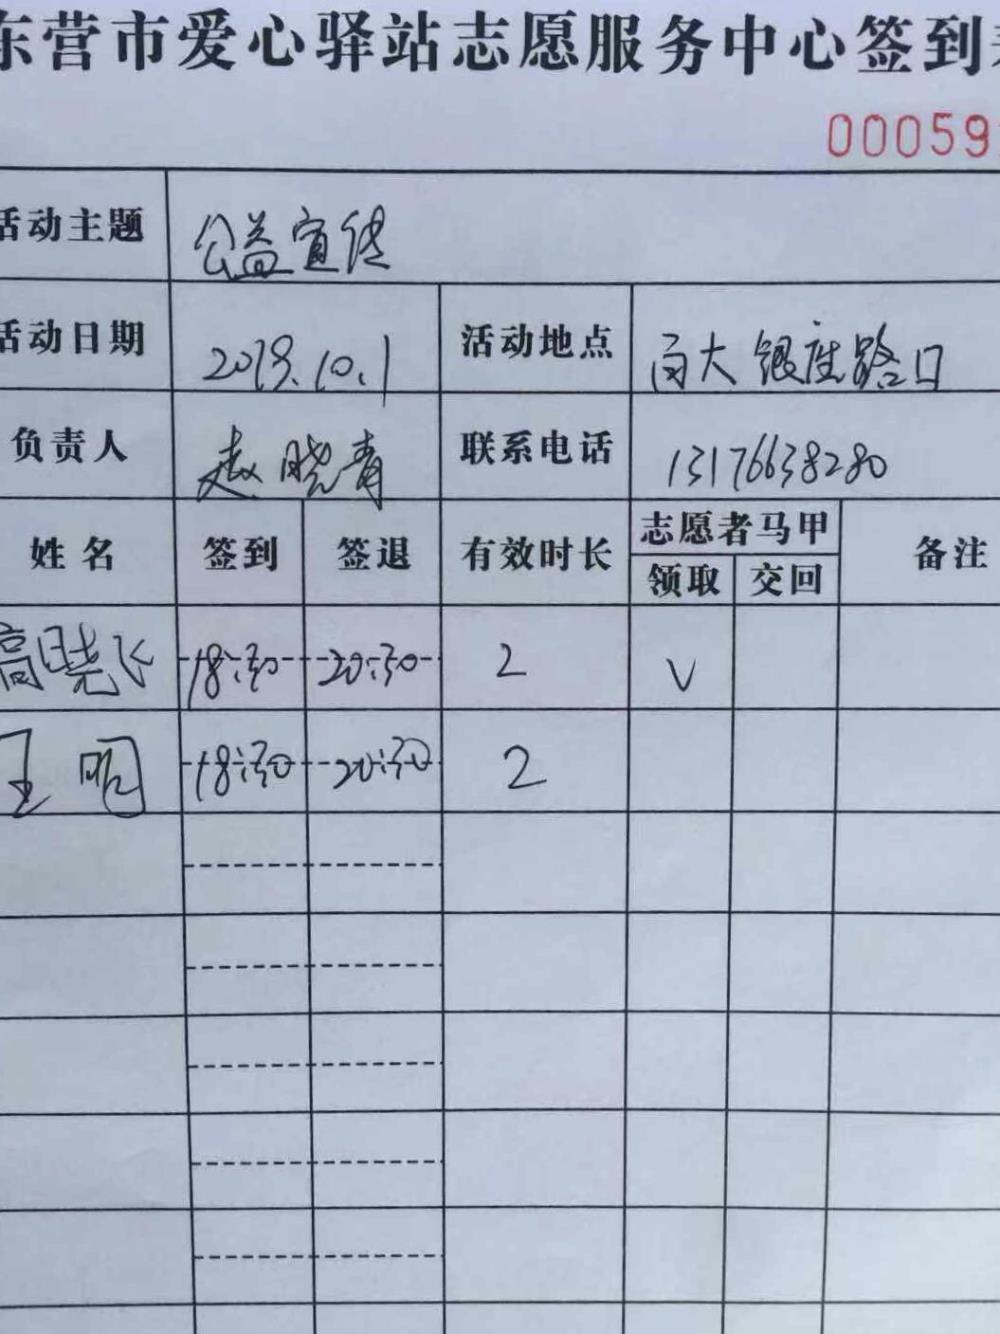 东营市爱心驿站志愿服务中心签到表
00059
活动主题 公益宣传
活动日期 2019.10.1 活动地点 百大银座路口
负责人 赵晓青 联系电话 13176638280
姓名 签到 签退 有效时长 志愿者马甲 备注
领取 交回
高晓飞 18:30 20:30 2 V
王明 18:30 20:30 2